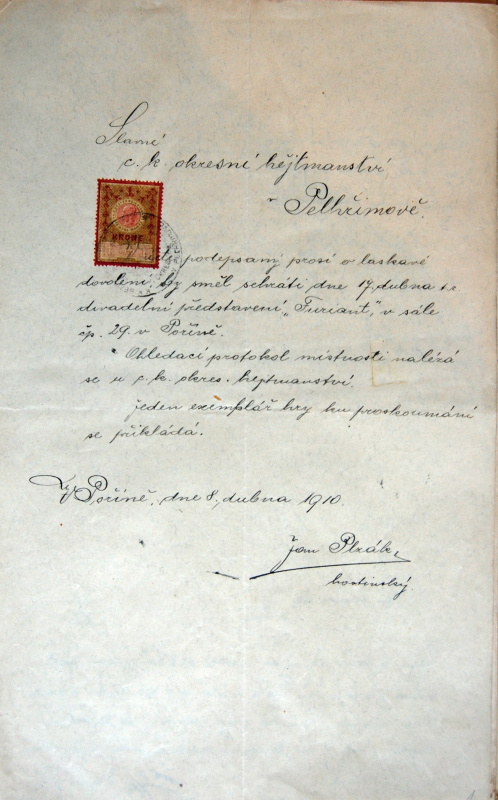 Slavné
c. k. okresní hejtmanství
v
Pelhřimově.
KRONE
podepsaný prosí o laskavé
dovolení, by směl sehráti dne 17. dubna t. r.
divadelní představení „Furiant", v sále
čp. 29. v Poříně.
Ohledací protokol místnosti nalézá
se u c. k. okres. hejtmanství.
Jeden exemplář hry ku proskoumání
se přikládá.
V Poříně, dne 8. dubna 1910.
Jan Plzák
hostinský